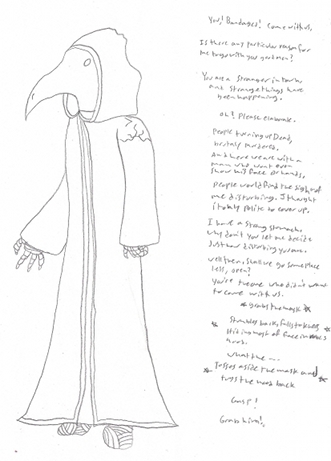 You! Bandaged! Come with us.
Is there any particular reason for
me to go with you good men?
You are a stranger in town
and strange things have
been happening.
Oh? Please elaborate.
People turning up Dead,
brutaly murdered.
And here we are with a
man who wont even
show his face or hands.
People would find the sight of
me disturbing. I thought
it only polite to cover up.
I have a strong stomach
why don't you let me decide
Just how disturbing you are.
well then, shall we go some place
less, open?
You're the one who didn't want
to come with us.
* grabs the mask *
* Stumbles back, falls to knees *
still in most of face in
hood.
What the ---
* Tosses aside the mask and *
tugs the hood back
Gasp!
Grab him!